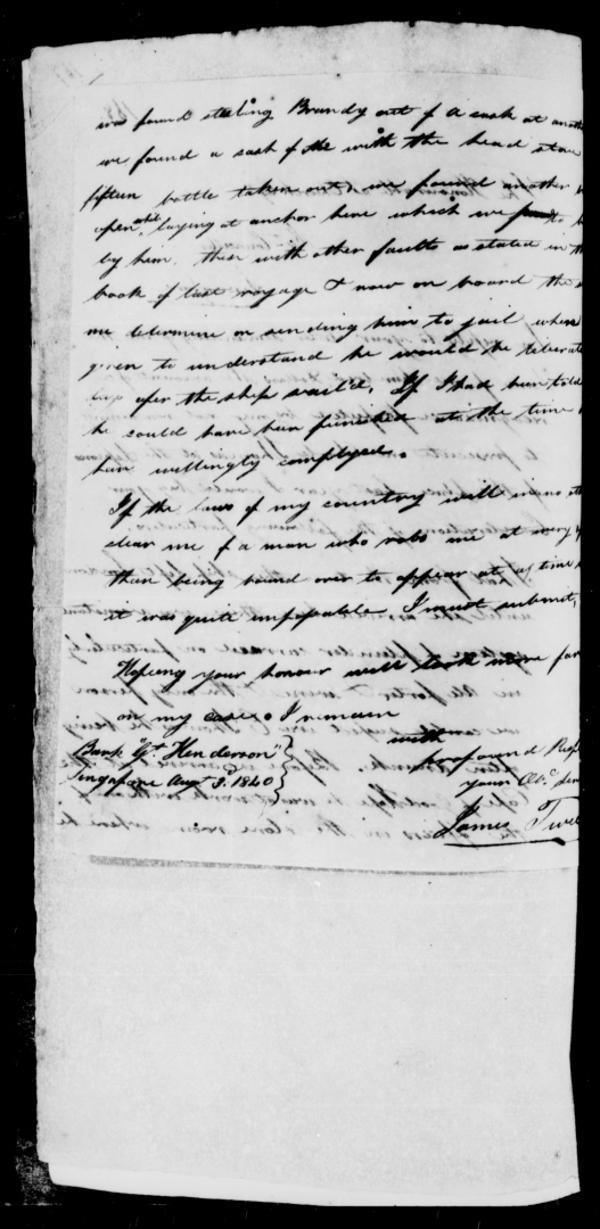 was found stealing Brandy out of a cask at anoth
we found a cask of the with the head stove
fifteen bottle taken out & we found another
open while laying at anchor here which we found to b
by him. these with other faults as stated in th
book of last voyage & now on board the s
me determine on sending him to jail where
given to understand he would be liberate
after the ship sail'd, If I had been told
he could have been punished at the time
have willingly complyed.
If the laws of my country will
clear me of a man who robs me at every
then being bound over to appear at a time
it was quite impossible I must submit,
Hopeing your honour will look more fav
on my case. I remain
with
profound Resp
your Obt. Serv
Bark "Gt. Henderson"
Singapore Augt. 3d. 1840
James Twee